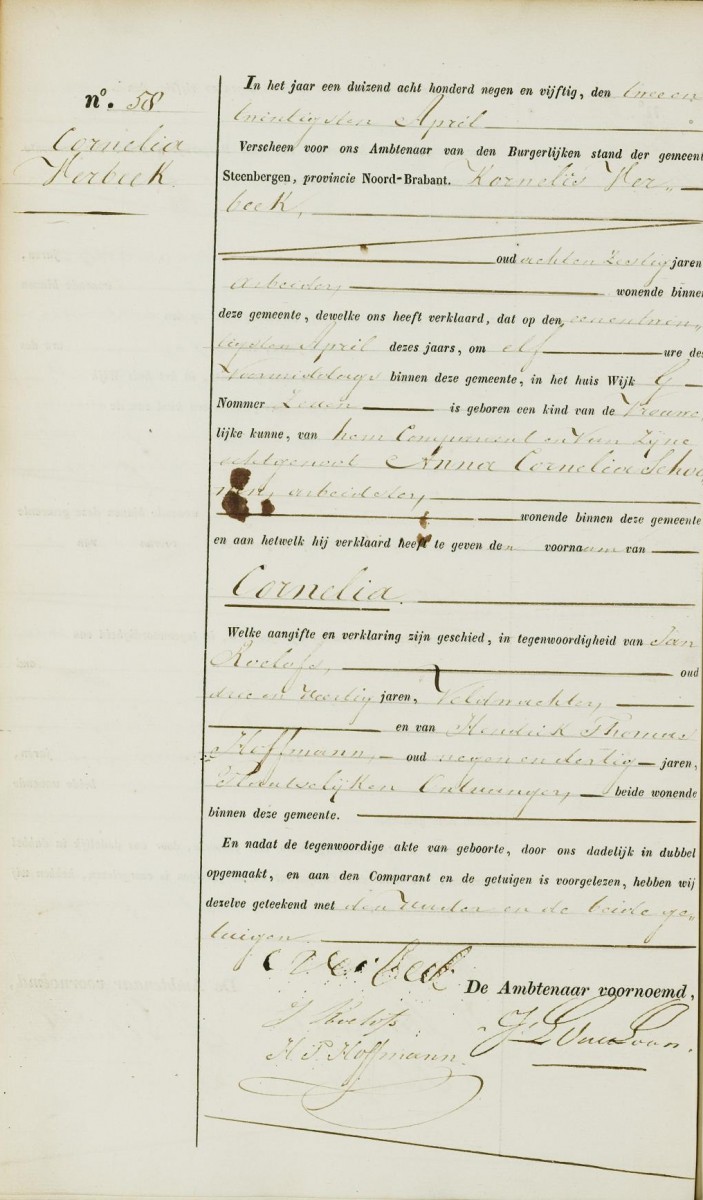 nº. 58
Cornelia
Verbeek.
In het jaar een duizend acht honderd negen en vijftig, den twee en
twintigsten April
Verscheen voor ons Ambtenaar van den Burgerlijken stand der gemeent
Steenbergen, provincie Noord-Brabant. Kornelis Ver„
beek,
oud acht en zestig jaren
arbeider, wonende binnen
deze gemeente, dewelke ons heeft verklaard, dat op den een en twin„
tigsten April dezes jaars, om elf ure des
Voormiddags binnen deze gemeente, in het huis Wijk G
Nommer Zeven is geboren een kind van de Vrouwe
lijke kunne, van hem Comparant en van Zijne
echtgenoot Anna Cornelia
arbeidster,
wonende binnen deze gemeente
en aan hetwelk hij verklaard heeft te geven den voornaam van
Cornelia.
Welke aangifte en verklaring zijn geschied, in tegenwoordigheid van Jan
Roelofs, oud
drie en veertig jaren, Veldwachter,
en van Hendrik Thomas
Hoffmann, oud negen en dertig jaren,
Plaatselijken Ontvanger, beide wonende
binnen deze gemeente.
En nadat de tegenwoordige akte van geboorte, door ons dadelijk in dubbel
opgemaakt, en aan den Comparant en de getuigen is voorgelezen, hebben wij
dezelve geteekend met den Vader en de beide ge„
tuigen.
C verbeek
De Ambtenaar voornoemd,
J Roelofs
H. T. Hoffmann.
van Loon.